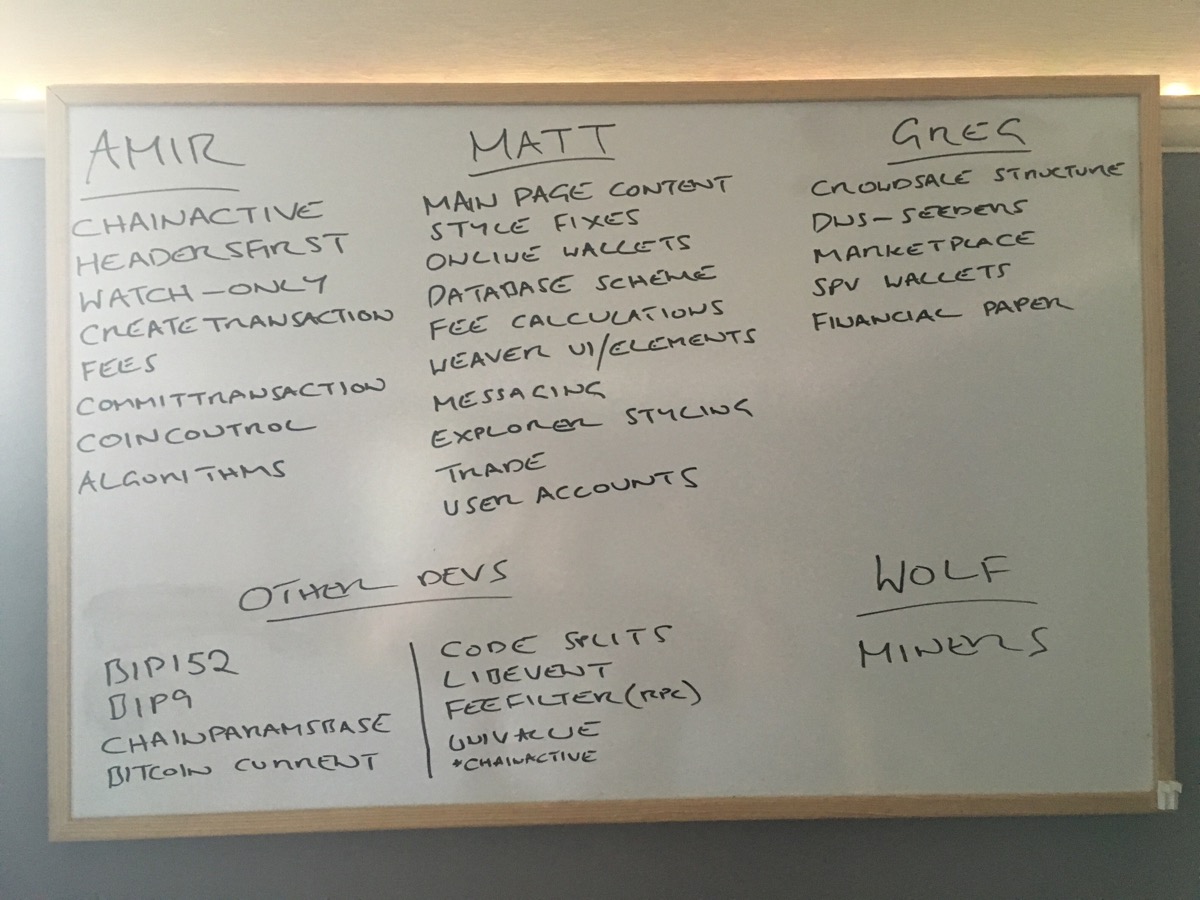 AMIR
CHAINACTIVE
HEADERSFIRST
WATCH-ONLY
CREATETRANSACTION
FEES
COMMITTRANSACTION
COINCONTROL
ALGORITHMS
MATT
MAIN PAGE CONTENT
STYLE FIXES
ONLINE WALLETS
DATABASE SCHEME
FEE CALCULATIONS
WEAVER UI/ELEMENTS
MESSAGING
EXPLORER STYLING
TRADE
USER ACCOUNTS
GREG
CROWDSALE STRUCTURE
DNS-SEEDERS
MARKETPLACE
SPV WALLETS
FINANCIAL PAPER
OTHER DEVS
BIP152
BIP9
CHAINPARAMSBASE
BITCOIN CURRENT
CODE SPLITS
LIBEVENT
FEEFILTER(RPC)
UNIVALUE
*CHAINACTIVE
WOLF
MINERS